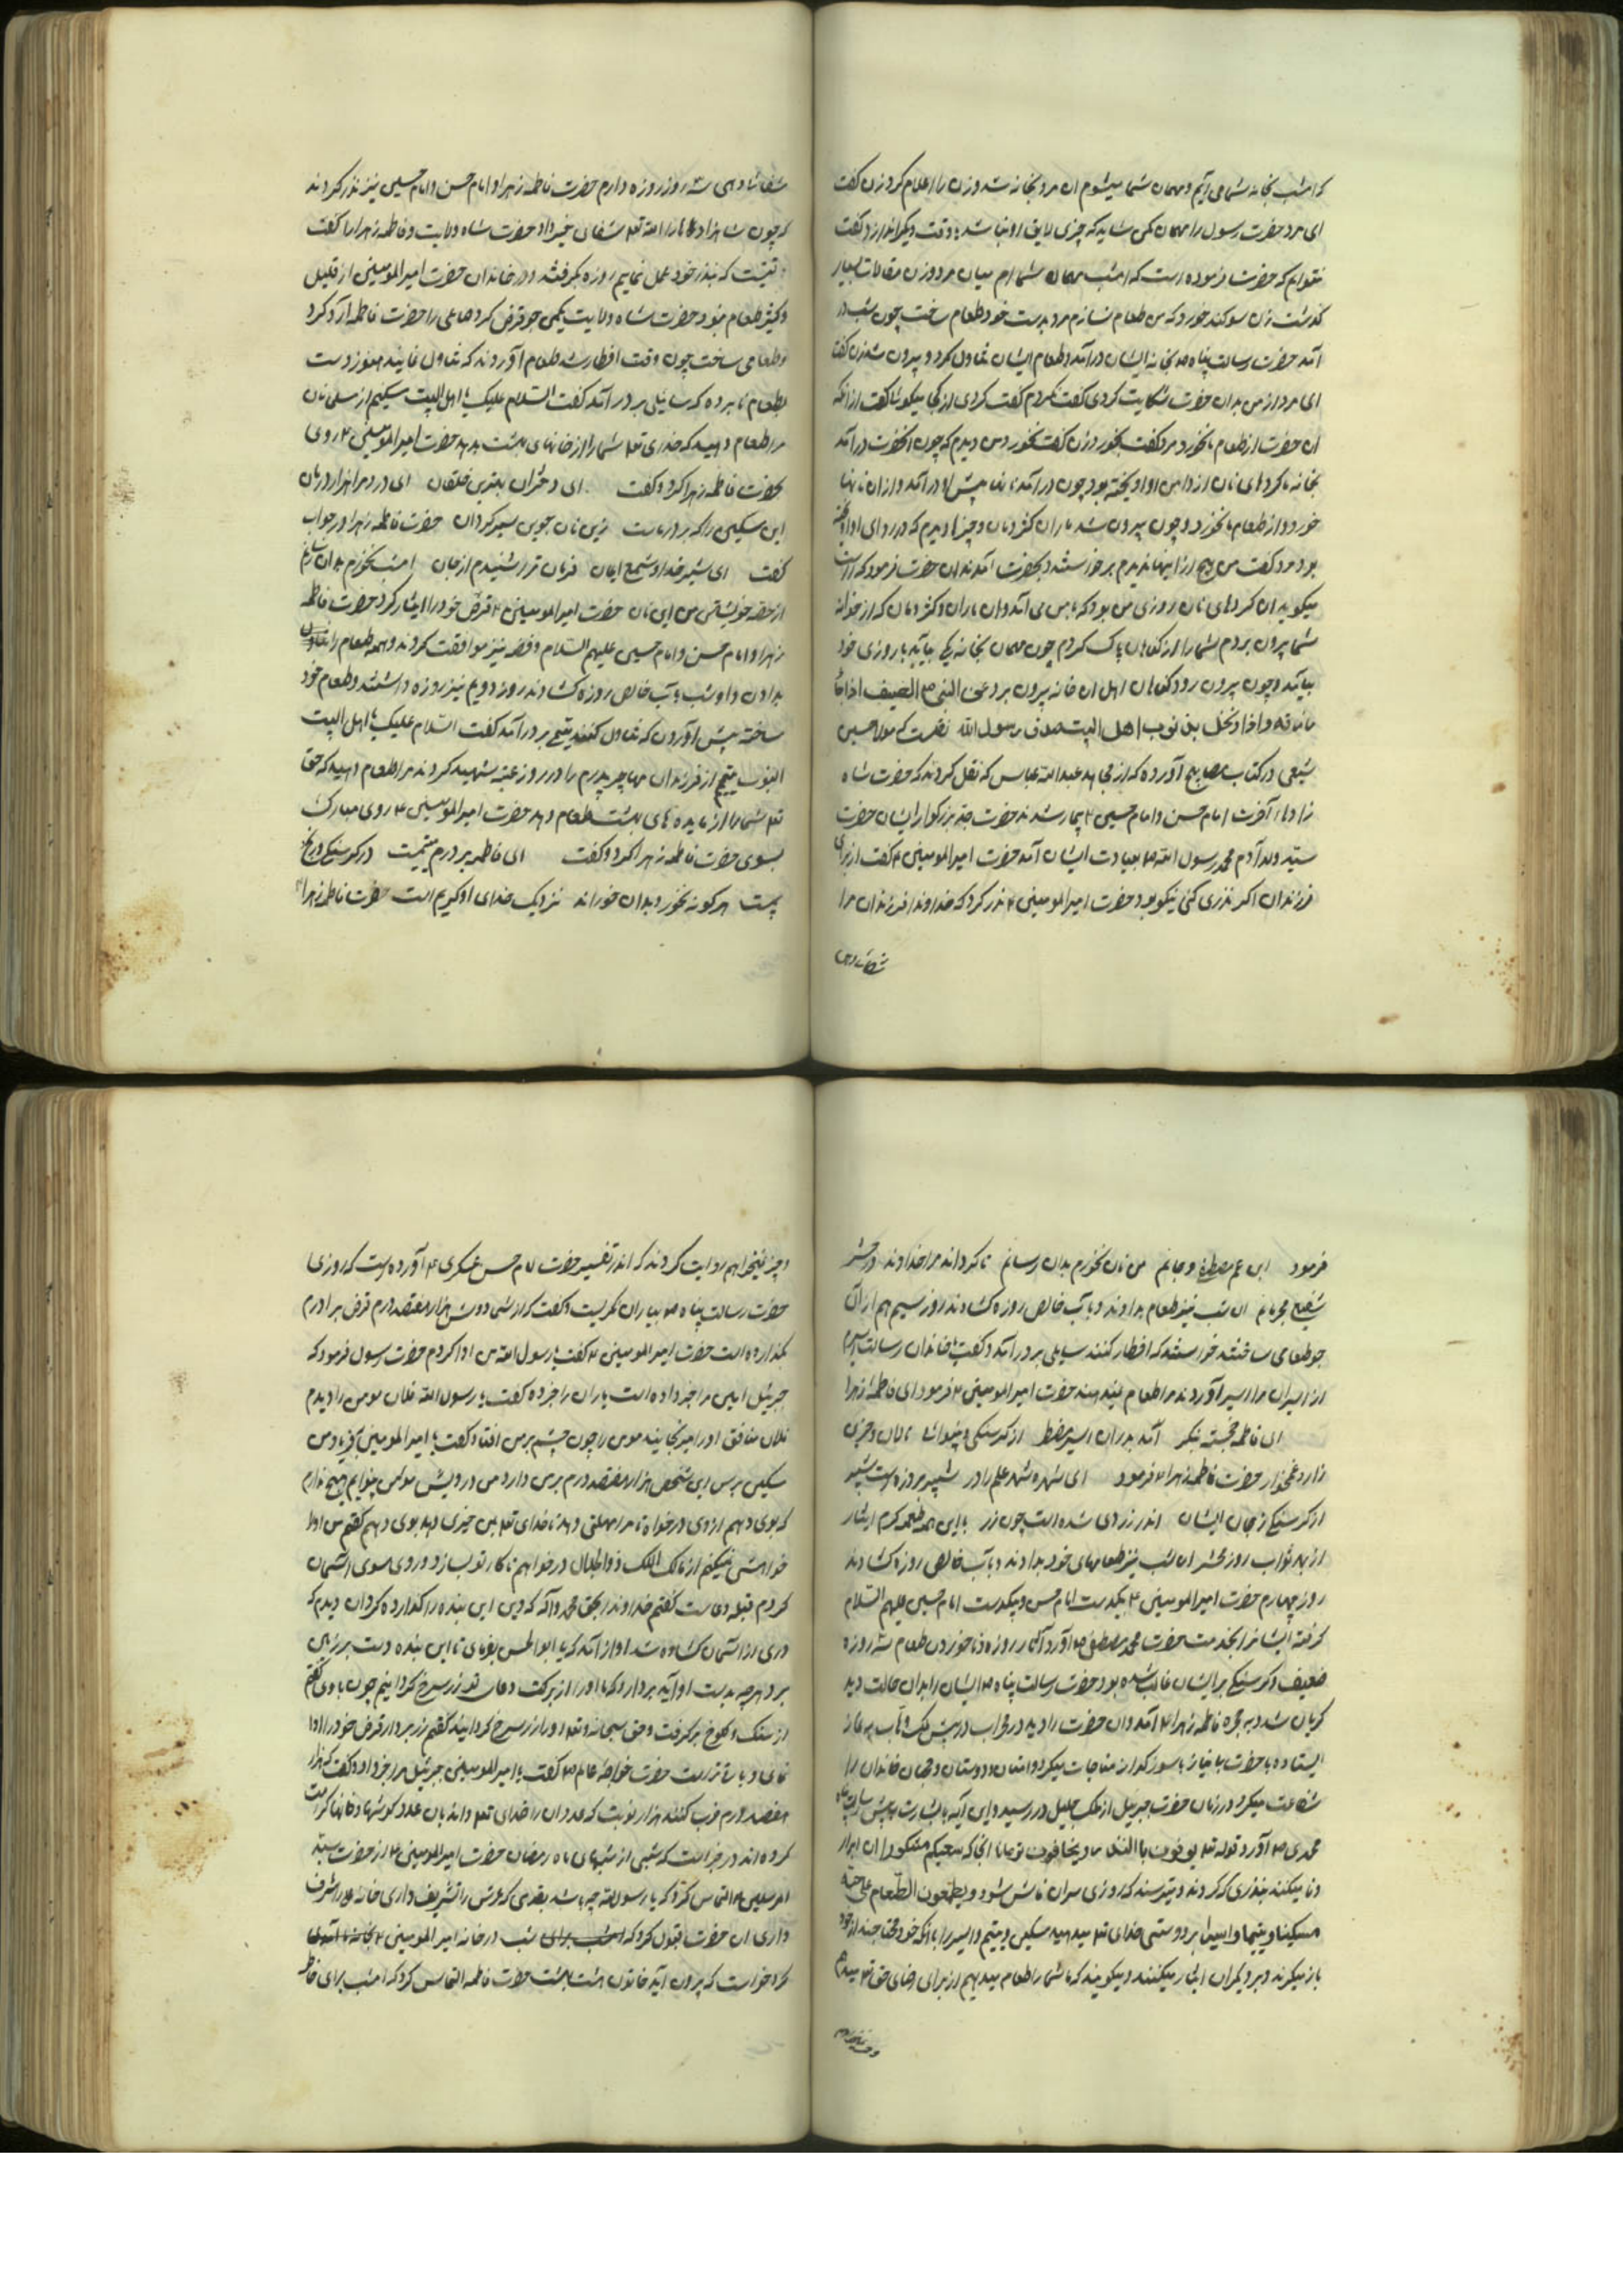 که امشب بخانه شما می آیم و مهمان شما میشوم ان مرد بخانه شد و زن را اعلام کرد زن گفت
ای مرد حضرت رسول را مهمان کمی شاید که چیزی لایق او نباشد وقت دیگر انداز مرد گفت
نتوانم که حضرت فرموده است که امشب مهمان شما ام میان مرد و زن مقالات بسیار
گذشت زن سوگند خورد که من طعام نسازم مرد بدست خود طعام ساخت چون شب در
آمد حضرت رسالت پناه بخانه ایشان درآمد و طعام ایشان تناول کرد و بیرون شد زن گفت
ای مرد از من بدان حضرت شکایت کردی گفت نکردم گفت کردی از کجا میگوئی گفت از آنکه
ان حضرت از طعام ما نخورد مرد گفت بخورد زن گفت نخورد من دیدم که چون انحضرت درآمد
بخانه ما کردهای نان از دامن او اویخته بود چون درآمد پیش او درآمد و ازان نانها
خورد و از طعام ما نخورد و چون بیرون شد ماران و کژدمان و چیزها دیدم که در ردای او اویخته
بود مرد گفت من هیچ از اینها ندیدم برخواستند و بحضرت آمدند ان حضرت فرمود که راست
میگوید ان کردهای نان روزی من بود که با من می آمد و ان ماران و کژدمان که از خوانه
شما بیرون بردم شما را از گناهان پاک کردم چون مهمان بخانه یکی بیاید با روزی خود
بیاید و چون بیرون رود گناهان اهل ان خانه بیرون برد عن النبی ص الضیف اذا جاء
جاء برزقه و اذا دخل بذنوب اهل البیت صدق رسول الله نقلست که مولا حسین
شیعی در کتاب مصابیح آورده که از مجاهد عبدالله عباس که نقل کردند که حضرت شاه
زادهاء آخرت امام حسن و امام حسین ع بیمار شدند حضرت جد بزرگوار ایشان حضرت
سید ولد آدم محمد رسول الله ص بعیادت ایشان آمد حضرت امیر المومنین ع گفت از برای
فرزندان اگر نذری کنی نیکو بود حضرت امیر المومنین ع نذر کرد که خداوندا فرزندان مرا
شفا دهی
شفا دهی سه روز روزه دارم حضرت فاطمه زهرا و امام حسن و امام حسین نیز نذر کردند
که چون شاهزادها را الله تعا شفای خیر داد حضرت شاه ولایت و فاطمه زهرا را گفت
تیت که بنذر خود عمل نماییم روزه گرفتند و در خاندان حضرت امیر المومنین از قلیل
و کثیر طعام نبود حضرت شاه ولایت یکمن جو قرض کرد صاعی را حضرت فاطمه آرد کرد
و طعامی ساخت چون وقت افطار شد طعام آوردند که تناول نمایند هنوز دست
بطعام نابرده که سائیلی بر در آمد گفت السلام علیک یا اهل البیت مسکینم از مسلمانان
مرا طعام دهید که خدای تعا شما را از خانهای بهشت بدهد حضرت امیر المومنین ع روی
بحضرت فاطمه زهرا کرد و گفت ای دختران بهترین خلقان ای درد مرا هزار درمان
این مسکین را که بر در ماست زین نان جوین سیر کردان حضرت فاطمه زهرا در جواب
گفت ای شیر خدا و شمع ایمان فرمان ترا شنیدم از جان امشب نخورم بدان رسانم
از حصه خویشتن من این نان حضرت امیر المومنین ع قرض خود را ایثار کرد حضرت فاطمه
زهرا و امام حسن و امام حسین علیهم السلام و فضه نیز موافقت کردند و همه طعام را بسائیل
بدادن و او شب بآب خالص روزه کشادند روز دویم نیز روزه داشتند و طعام خود
ساخته پیش آوردن که تناول کنند یتیمی بر در آمد گفت السلام علیک یا اهل البیت
النبوت یتیم از فرزندان مهاجر پدرم را در روز عقبه شهید کردند مرا طعام دهید که حق
تعا شما را از مایدهای بهشت طعام دهد حضرت امیر المومنین ع روی مبارک
بسوی حضرت فاطمه زهرا کرد و گفت ای فاطمه بر درم یتیمست در گرسنگی و رنج
پست هر کو نه بخورد بدان خوراند نزدیک خدای او کریم است حضرت فاطمه زهرا ع
فرمود ابن عم مصطفی و جانم من نان نخورم بدان رسانم تا کرداند مرا خداوند در حشر
شفیع مجرمانم ان شب نیز طعام بدادند و بآب خالص روزه کشادند روز سیم هم از آن
جو طعامی ساختند خواستند که افطار کنند سایلی بر در آمد و گفت یا خاندان رسالت اسیرم
از اسیران مرا اسیر آوردند مرا طعام نمیدهند حضرت امیر المومنین ع فرمود ای فاطمه زهرا
ای فاطمه خجسته پیکر آمد بدر ان اسیر مضطر از گرسنگی و بینوائی نالان و حزین
زار و غمخوار حضرت فاطمه زهرا ع فرمود ای شهره شهر علم را در شبیر بروزه است شبر
از گرسنگی ز جان ایشان اندر زردی شده است چون زر با این همه طعمه کرم ایثار
از بهر ثواب روز محشر ان شب نیز طعامهای خود بدادند و بآب خالص روزه کشادند
روز چهارم حضرت امیر المومنین ع بیکدست امام حسن و بیکدست امام حسین علیهم السلام
گرفته ایشانرا بخدمت حضرت محمد مصطفی ص آورد آثار روزه و ناخوردن طعام سه روزه
ضعیف و گرسنگی بر ایشان غالب شده بود حضرت رسالت پناه ص ایشان را بدان حالت دید
گریان شد و به حجره فاطمه زهرا ع آمد و ان حضرت را دید در محراب در پیش ملک وهاب به نماز
ایستاده با حضرت بی نیاز با سوز و گداز مناجات میکرد و امتان و دوستان و محبان خاندان را
شفاعت میکرد در زمان حضرت جبریل از ملک جلیل در رسید و این آیه بابشارت پیش رسالت پناه
محمدی ص آورد قوله تعا یوفون بالنذر و یخافون یوما تا انجا که سعیکم مشکورا ان ابرار
وفا میکنند بنذری که کردند و میترسند که روزی سران فاش شود و یطعمون الطعام علی حبه
مسکینا و یتیما و اسیرا بر دوستی خدای تعا میدهند مسکین و یتیم و اسیر را با آنکه خود محتاجند از خود
باز میگیرند و بر دیگران ایثار میکنند و میگویند که ما شما را طعام میدهیم از برای رضای حق تعا میدهیم
و جزا نمیخواهیم
و جزا نمیخواهیم روایت کردند که اندر تفسیر حضرت امام حسن عسکری ع آورده است که روزی
حضرت رسالت پناه ص بیاران نگریست و گفت که از شما دوش هزار هفتصد درم قرض برادرم
گذارده است حضرت امیر المومنین ع گفت یا رسول الله من ادا کردم حضرت رسول فرمود که
جبرئیل امین مرا خبر داده است یاران را خبر ده گفت یا رسول الله فلان مومن را دیدم
فلان منافق او را میرنجانید مومن را چون چشم بر من افتاد گفت یا امیر المومنین بفریاد من
مسکین برس این شخص هزار هفتصد درم بر من دارد و من درویش مومن بینوایم هیچ ندارم
که بوی دهم از وی درخواه تا مرا مهلتی دهد تا خدای تعا بمن خیری دهد بوی دهم گفتم من او را
خواهش نمیکنم از مالک الملک ذوالجلال درخواهم تا کار تو بسازد و روی سوی آسمان
کردم قبله دعاست گفتم خداوندا بحق محمد و آله که دین این بنده را گذارده کردان دیدم که
دری از آسمان کشاده شد آواز آمد که یا ابوالحسن بفرمای تا این بنده دست بر زمین
برد هر چه بدست او آید بردارد که ما او را از برکت دعای تو زر سرخ کردانیم چون باوی گفتم
از سنگ و کلوخ برگرفت و حق سبحانه و تعا او را زر سرخ کردانید گفتم زر بردار قرض خود را ادا
نمای و باقی تراست حضرت خواجه عالم ص گفت یا امیر المومنین جبرئیل مرا خبر داد و گفت که هزار
هفتصد درم ضرب کنند هزار نوبت که عدد ان را خدای تعا داند بان عدد کوشکها و خانها کرامت
کرده اند در خبر است که شبی از شبهای ماه رمضان حضرت امیر المومنین ع از حضرت سید
المرسلین ص التماس کرد که یا رسول الله چه باشد بقدمی که عرش را تشریف داری خانه ما را شرف
داری ان حضرت قبول کرد که امشب برای شب در خانه امیر المومنین ع بخانه ما آمدی
کرد خواست که بیرون آید خاتون هشت بهشت حضرت فاطمه التماس کرد که امشب برای خاطر